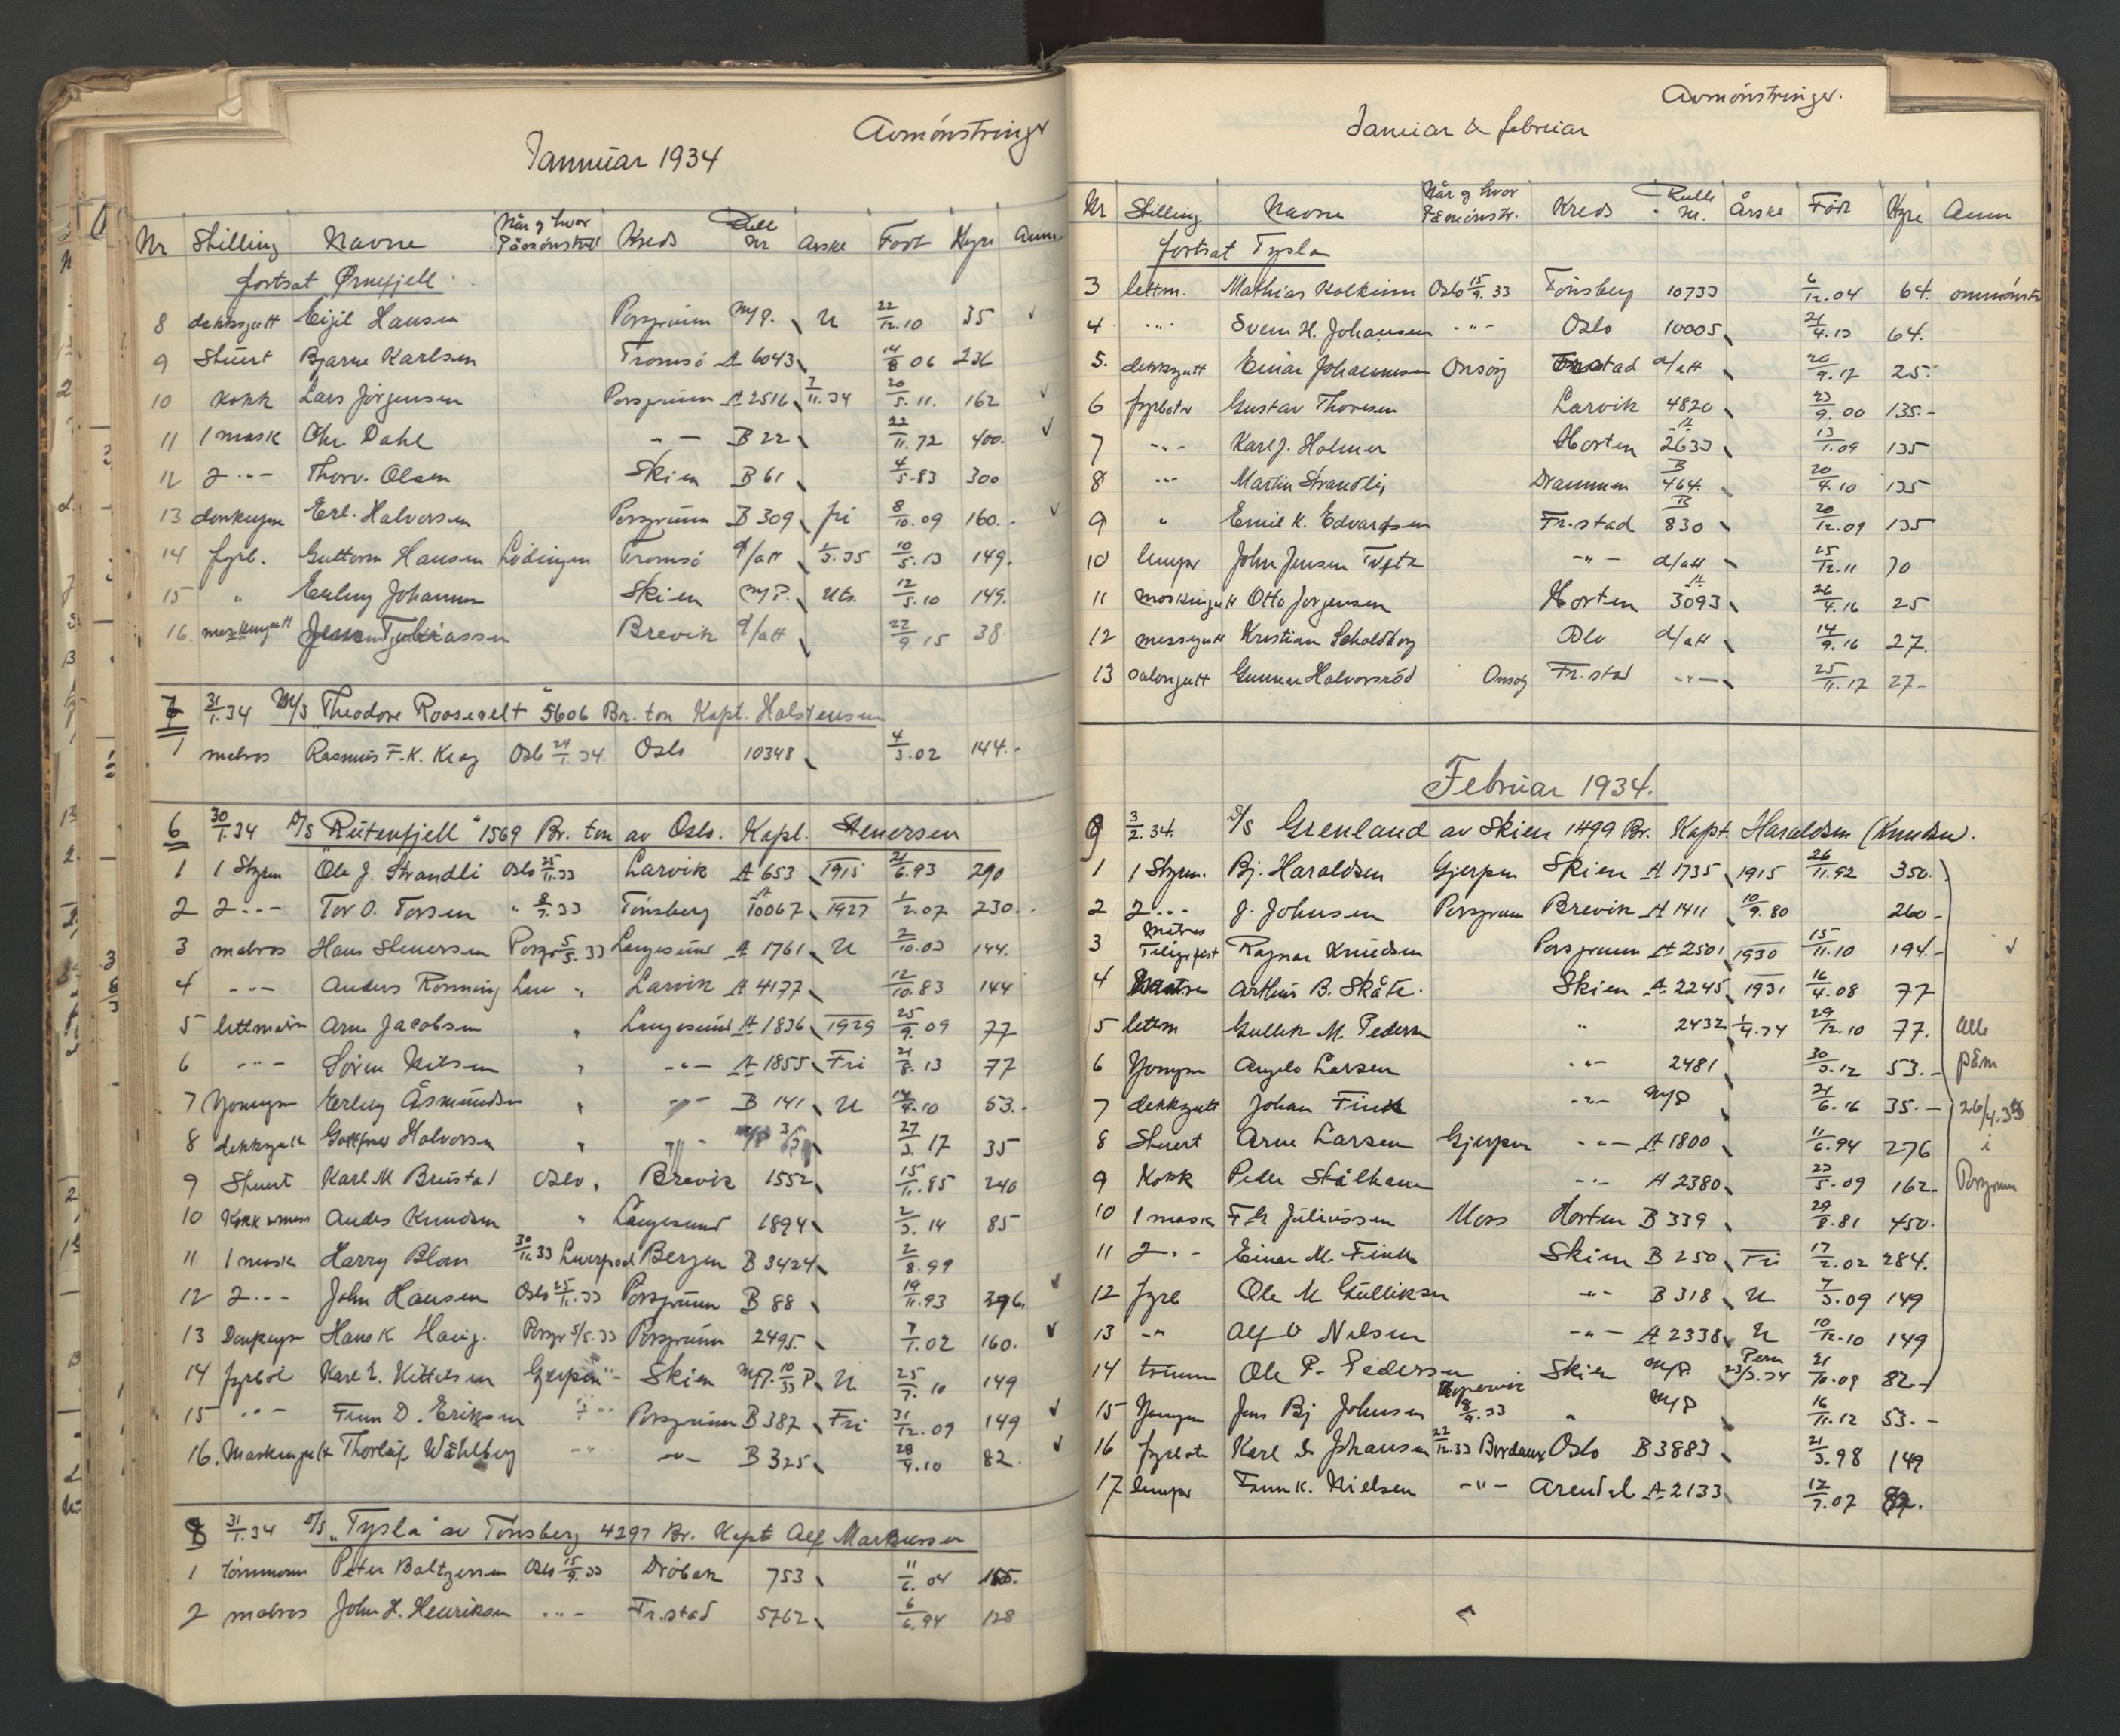 Avmónstringer
Januúar 1934
Nr Stilling Navne Når og hvor Påmónstret Kreds Rull Nr Årske Født Hyre Anm
fortsat Ørnefjell
8 dekksgutt Eigil Hansen Porsgrúnn m/P. U 22/12.10 35 ✓
9 Stúert Bjarne Karlsen Tromsó A 6043 14/8 06 236
10 Kokk Lars Jørgensen Porsgrúnn A 2516 7/11.34 20/5.11. 162 ✓
11 1 mask Chr Dahl -"- B 22 22/11.72 400. ✓
12 2 -"- Thorv. Olsen Skien B 61 4/5.83 300
13 donkeym Erl. Halvorsen Porsgrúnn B 309 fri 8/10.09 160.- ✓
14 fyrb. Guttorm Hansen Lódingen Tromsó d/att 1/3.35 10/5.13 149.
15 " Erling Johannes Skien m/P. Uts. 12/5.10 149.
16. maskingutt Brevik d/att 22/9.15 38.
7 31/1.34 M/S "Theodore Roosevelt" 5606 Br. ton Kapt. Halstensen
1 matros Rasmus F.K. Krag Oslo 24/1.34. Oslo 10348 4/3.02 144.-
6 30/1.34 D/S "Rútenfjell" 1569 Br. ton av Oslo. Kapt. Stenersen
1 1 Styrm Ole J. Strandli Oslo 25/11.33 Larvik A 653 1915 21/6.93 290
2 2 -"- Tor O. Torsen " 8/7.33 Tónsberg A 10067 1927 1/2.07 230.
3 matros Hans Stenersen Porsgr 5/5.33 Langesúnd A 1761 U 2/10.03 144.
4 -"- Anders Rónning Larv " Larvik A 4177 12/10.83 144
5 lettmatr Arne Jacobsen " Langesúnd A 1836 1929 25/9.09 77
6 -"- Sóren Nilsen " -"- A 1855 Fri 21/8.13 77
7 Yongm Erling Åsmúndsen " -"- B 141 U 14/4.10 53.-
8 dekksgutt Halvorsen " -"- 27/3.17 35
9 Stuert Karl M Brústad Oslo " Brevik 1552 15/11.85 246
10 Kokk Anders Knudsen " Langesund 1894 2/3.14 85
11 1 mask Harry Blom 30/11.33 Liverpool Bergen B 3424 2/8.99
12 2 -"- John Hansen Oslo 25/11.33 Porsgrúnn B 88 19/11.93 396. ✓
13 Donkeym Hans K Havig. Porsgr 5/5.33 Porsgrúnn 2495 7/1.02 160. ✓
14 fyrbót Karl E. Kittelsen Gjerpen -"- Skien m/P. 10/33 P. U 25/7.10 149
15 -"- Finn D. Eriksen -"- Porsgrúnn B 387 Fri 31/12.09 149 ✓
16. Maskingutt Thorleif Wåhlberg -"- -"- B 325 28/4.10 82. ✓
8 31/1.34 D/S "Tysla" av Tónsberg 4297 Br. Kapt Alf Markussen
1 tómmerm Peter Baltzersen Oslo 15/9.33 Dróbak 753 11/6.04 165.
2 matros John H. Henriksen -"- Fr.stad 5762 6/6.94 128
Avmónstringer.
Januar & februar
Nr Stilling Navne Når og hvor Påmónstr. Kreds Rulle nr. Årske Født Hyre Anm
fortsat Tysla
3 lettm. Mathias Kolkinn Oslo 15/9.33 Tónsberg 10733 6/12.04 64. ommónstr
4 -"- Svein H. Johansen -"- Oslo 10005 21/4.13 64.
5. dekksgutt Einar Johannessen Onsóy Fr.stad d/att 20/9.17 25.
6 fyrbótr Gustav Thoresen Larvik 4820 23/9.00 135.-
7 -"- Karl J. Holmer Horten A 2633 13/1.09 135
8 -"- Martin Strandli Drammen B 464 20/4.10 135
9 " Emil K. Edvardsen Fr.stad B 830 20/12.09 135
10 lempr John Jensen Tvete -"- d/att 25/12.11 70
11 maskingutt Otto Jorgensen Horten A 3093 26/4.16 25
12 messgutt Kristian Scholdborg Oslo d/att 14/9.16 27.
13 salongutt Gunnar Halvorsród Onsóy Fr.stad -"- 25/11.17 27-
Februar 1934.
9 3/2.34. D/S Grenland av Skien 1499 Br. Kapt. Haraldsen (Knudsen).
1 1 Styrm. Bj. Haraldsen Gjerpen Skien A 1735 1915 26/11.92 350.
2 2 -"- J. Johnsen Porsgrunn Brevik A 1411 10/9.80 260-
3 Matros Telegrafist Ragnar Knúdsen Porsgrunn A 2501 1930 15/11.10 194.- ✓
4 Arthúr B. Skåte. Skien A 2245 1931 16/4.08 77
5 lettm Gullik M. Pedersen " 2432 1/4.34 29/12.10 77. alle
6 Yongm Angelo Larsen -"- 2481 30/3.12 53.- påm
7 dekkgutt Johan Fink -"- m/P 21/6.16 35.- 26/4.33
8 Stuert Arne Larsen Gjerpen -"- A 1800 11/6.94 276 i
9 Kokk Peder Stålhane -"- A 2380 23/5.09 162. Porsgrunn
10 1 mask Fr Júliússen Moss Horten B 339 29/8.81 450.
11 2 -"- Einar M. Fink Skien B 250 Fri 17/2.02 284.
12 fyrb Ole M Gúlliksen -"- B 318 U 7/3.09 149
13 -"- Alf O Nilsen -"- A 2338 U 10/12.10 149
14 trimm Ole P. Pedersen Skien m/P. Perm 23/3.34 21/10.09 82.-
15 Yongm Jens Bj Johnsen Kopervik 8/9.33 " m/P 16/11.12 53.-
16 fyrbót Karl S Johansen 22/12.33 Bordeaux Oslo B 3883 21/3.98 149
17 lempr Finn K. Nielsen -"- Arendal A 2133 12/7.07 82.